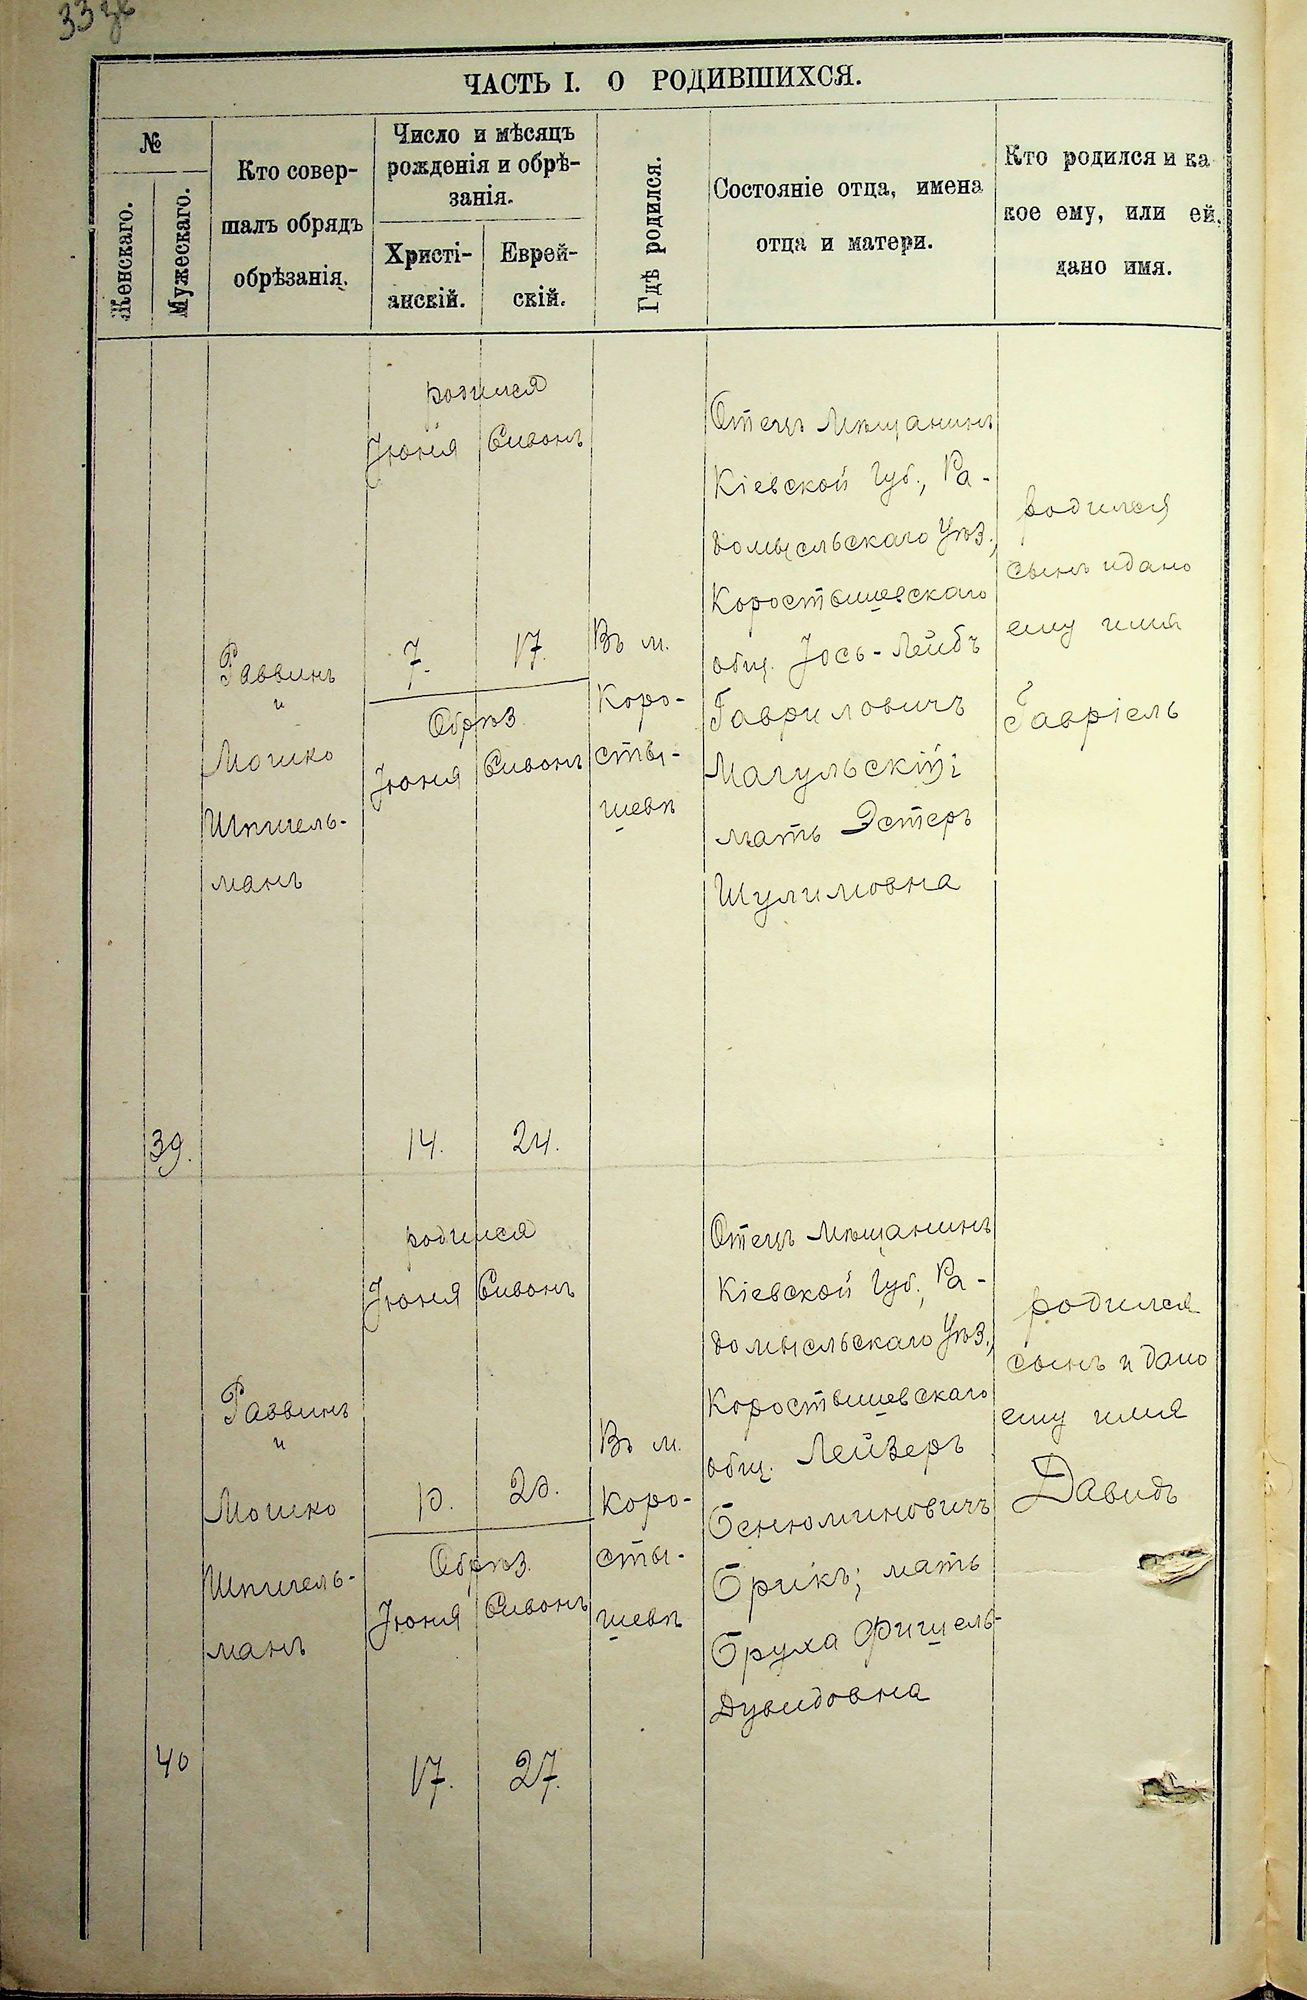 ЧАСТЬ I. О РОДИВШИХСЯ.
№
Женскаго.
Мужескаго.
Кто совер-
шалъ обрядъ
обрѣзанія.
Число и мѣсяцъ
рожденія и обрѣ-
занія.
Христі-
анскій.
Еврей-
скій.
Гдѣ родился.
Состояніе отца, имена
отца и матери.
Кто родился и ка
кое ему, или ей,
дано имя.
39.
Раввинъ
и
Мошко
Шпигель-
манъ
родился
Іюня Сивонъ
7. 17.
Обрѣз.
Іюня Сивонъ
14. 24.
Въ м.
Коро-
сты-
шевѣ
Отецъ Мѣщанинъ
Кіевской Губ., Ра-
домысльскаго Уѣз.,
Коростышевскаго
общ. Іось-Лейбъ
Гавриловичъ
Магульскій;
мать Эстеръ
Шулимовна
родился
сынъ и дано
ему имя
Гавріель
40
Раввинъ
и
Мошко
Шпигель-
манъ
родился
Іюня Сивонъ
10. 20.
Обрѣз.
Іюня Сивонъ
17. 27.
Въ м.
Коро-
сты-
шевѣ
Отецъ Мѣщанинъ
Кіевской Губ., Ра-
домысльскаго Уѣз.,
Коростышевскаго
общ. Лейзеръ
Бенюминовичъ
Брикъ; мать
Бруха Фишель-
Дувидовна
родился
сынъ и дано
ему имя
Давидъ